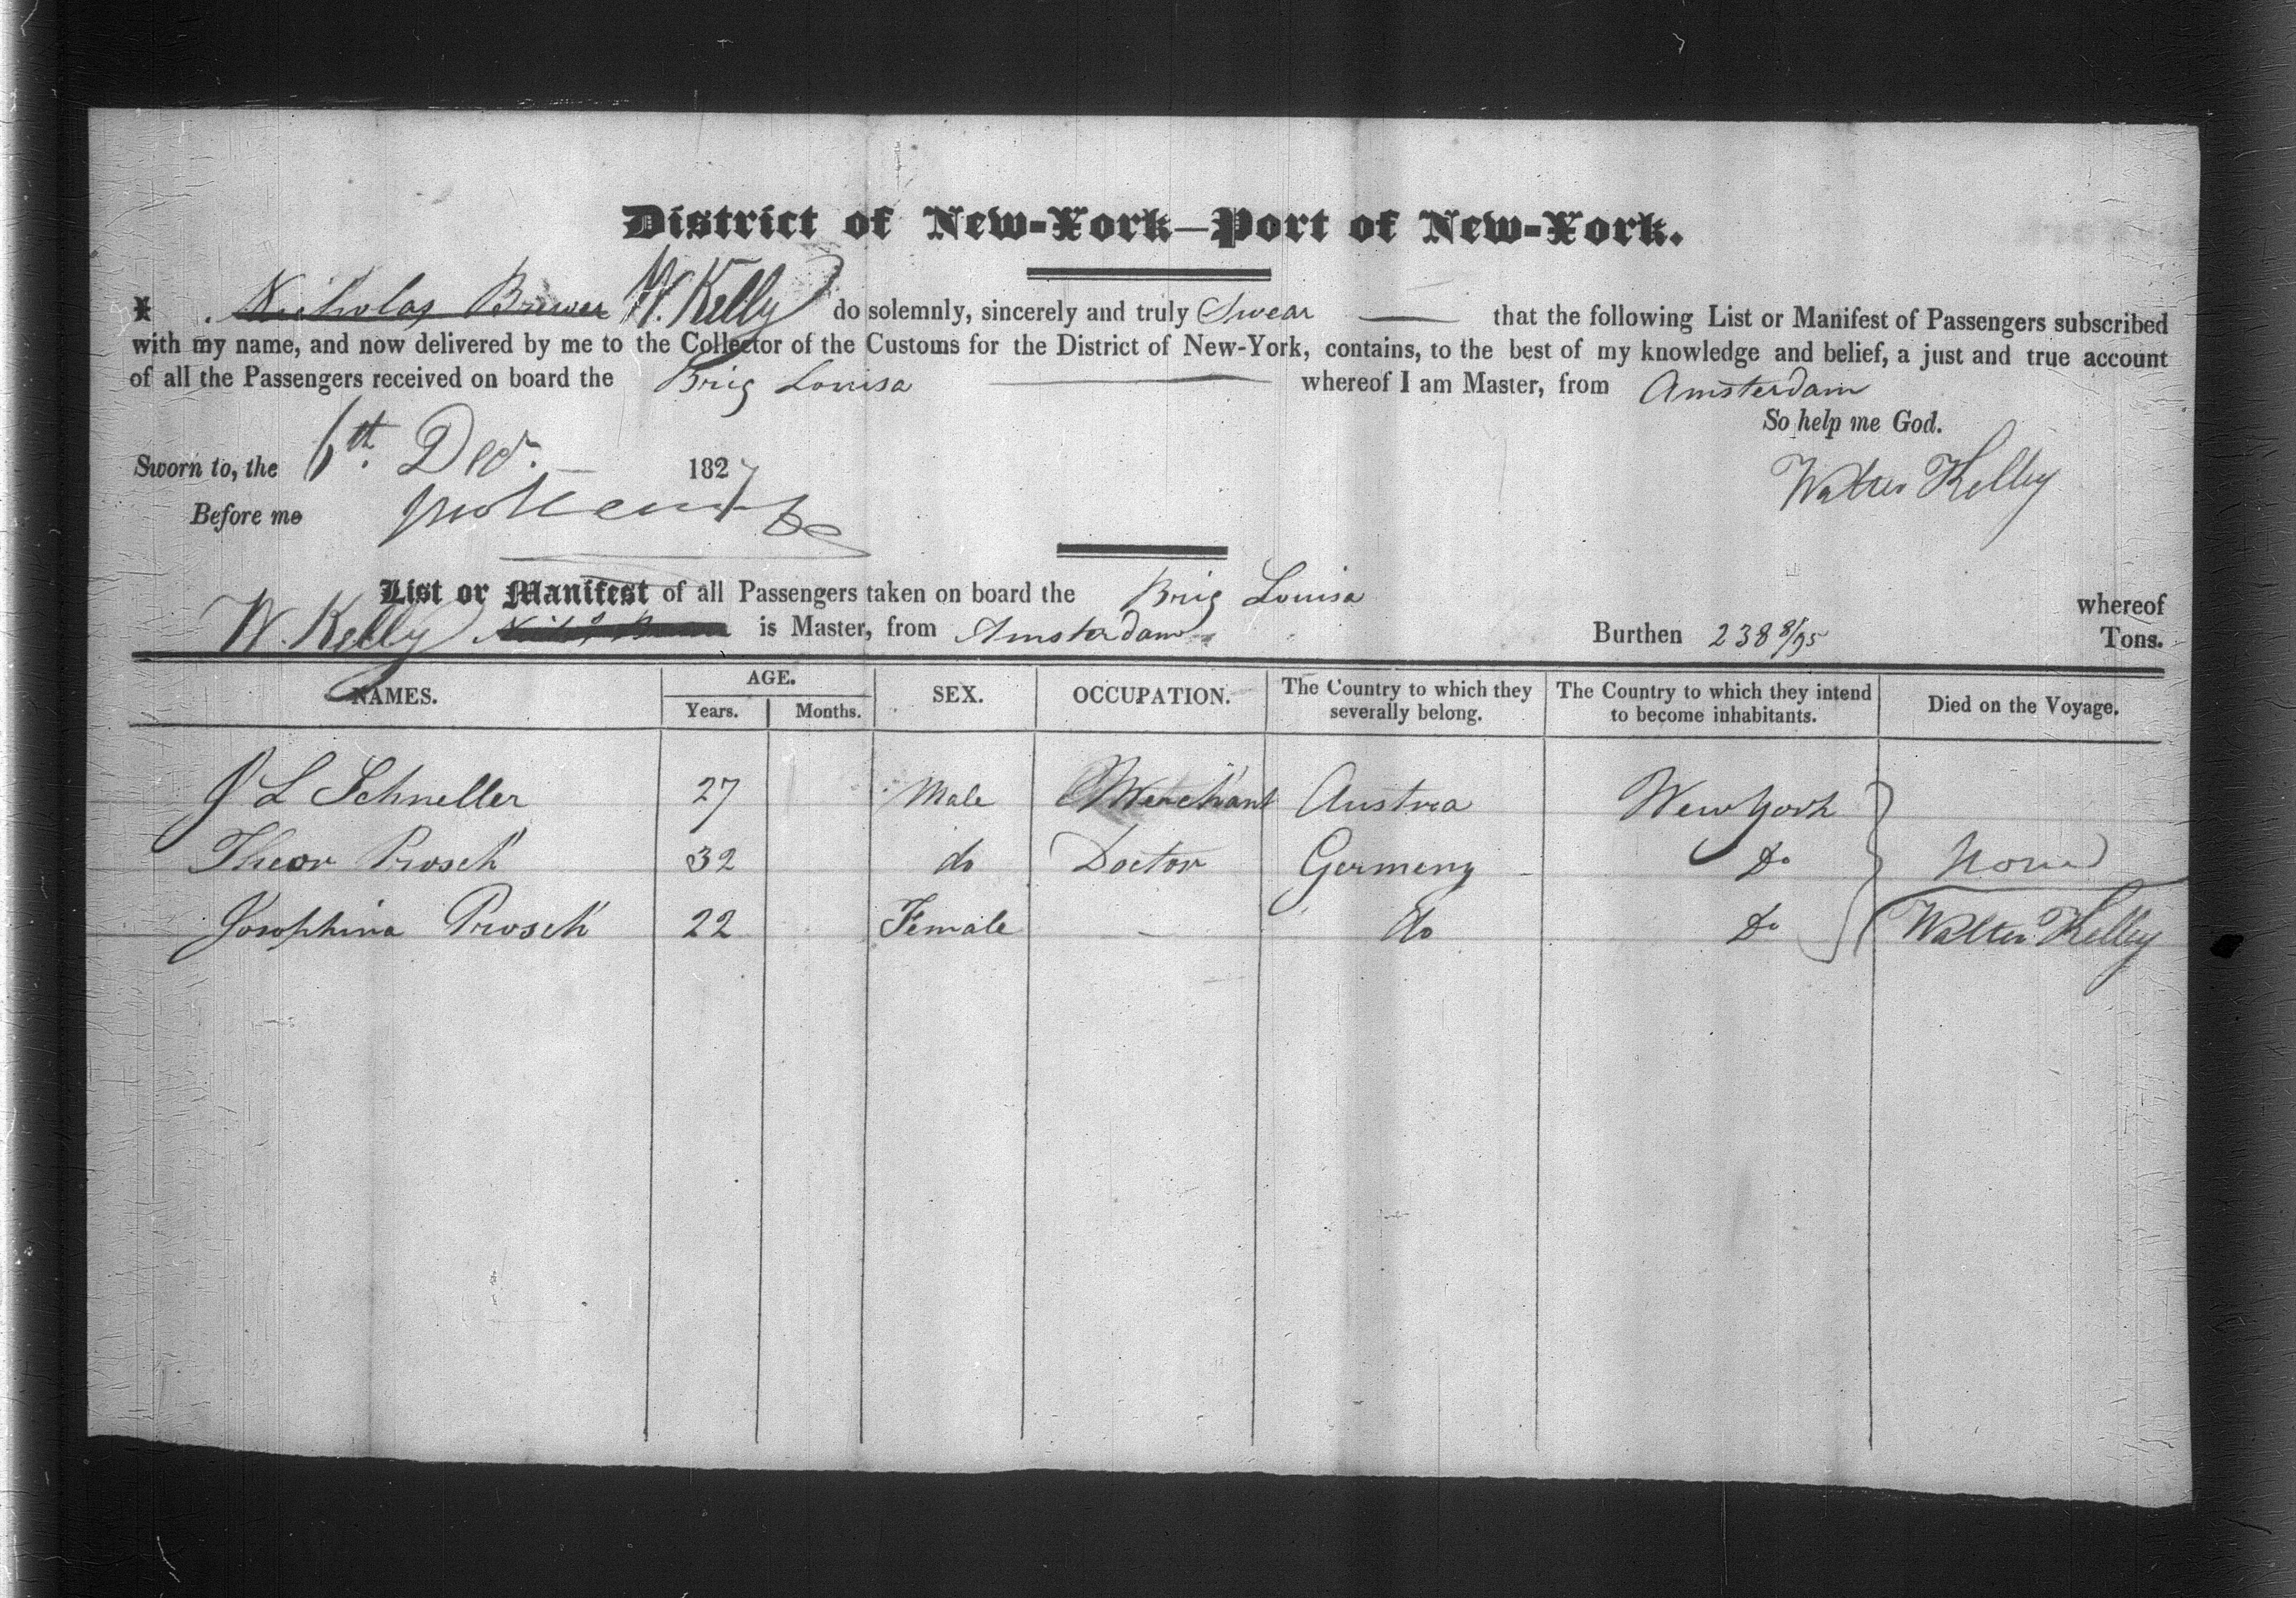 District of New-York—Port of New-York.
I Nicholas Brewer W. Kelly do solemnly, sincerely and truly Swear — that the following List or Manifest of Passengers subscribed
with my name, and now delivered by me to the Collector of the Customs for the District of New-York, contains, to the best of my knowledge and belief, a just and true account
of all the Passengers received on board the Brig Louisa — whereof I am Master, from Amsterdam
So help me God.
Sworn to, the 6th. Dec. — 1827
Walter Kelley
Before me
List or Manifest of all Passengers taken on board the Brig Louisa whereof
W. Kelly is Master, from Amsterdam Burthen 238 8/95 Tons.
NAMES. AGE. Years. Months. SEX. OCCUPATION. The Country to which they severally belong. The Country to which they intend to become inhabitants. Died on the Voyage.
J L Schneller 27 Male Merchant Austria New York
Theor Prosch 32 do Doctor Germeny Do None
Josephina Prosch 22 Female - do Do Walter Kelley